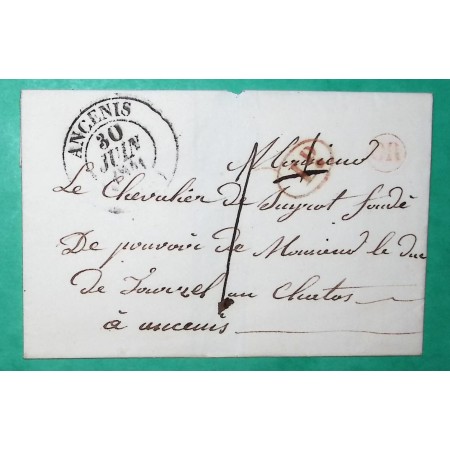 ANCENIS
30
JUIN
OR
Monsieur
Le Chevalier de Suyrot fondé
De pouvoir de Monsieur le duc
de Tourzel au
à ancenis
1